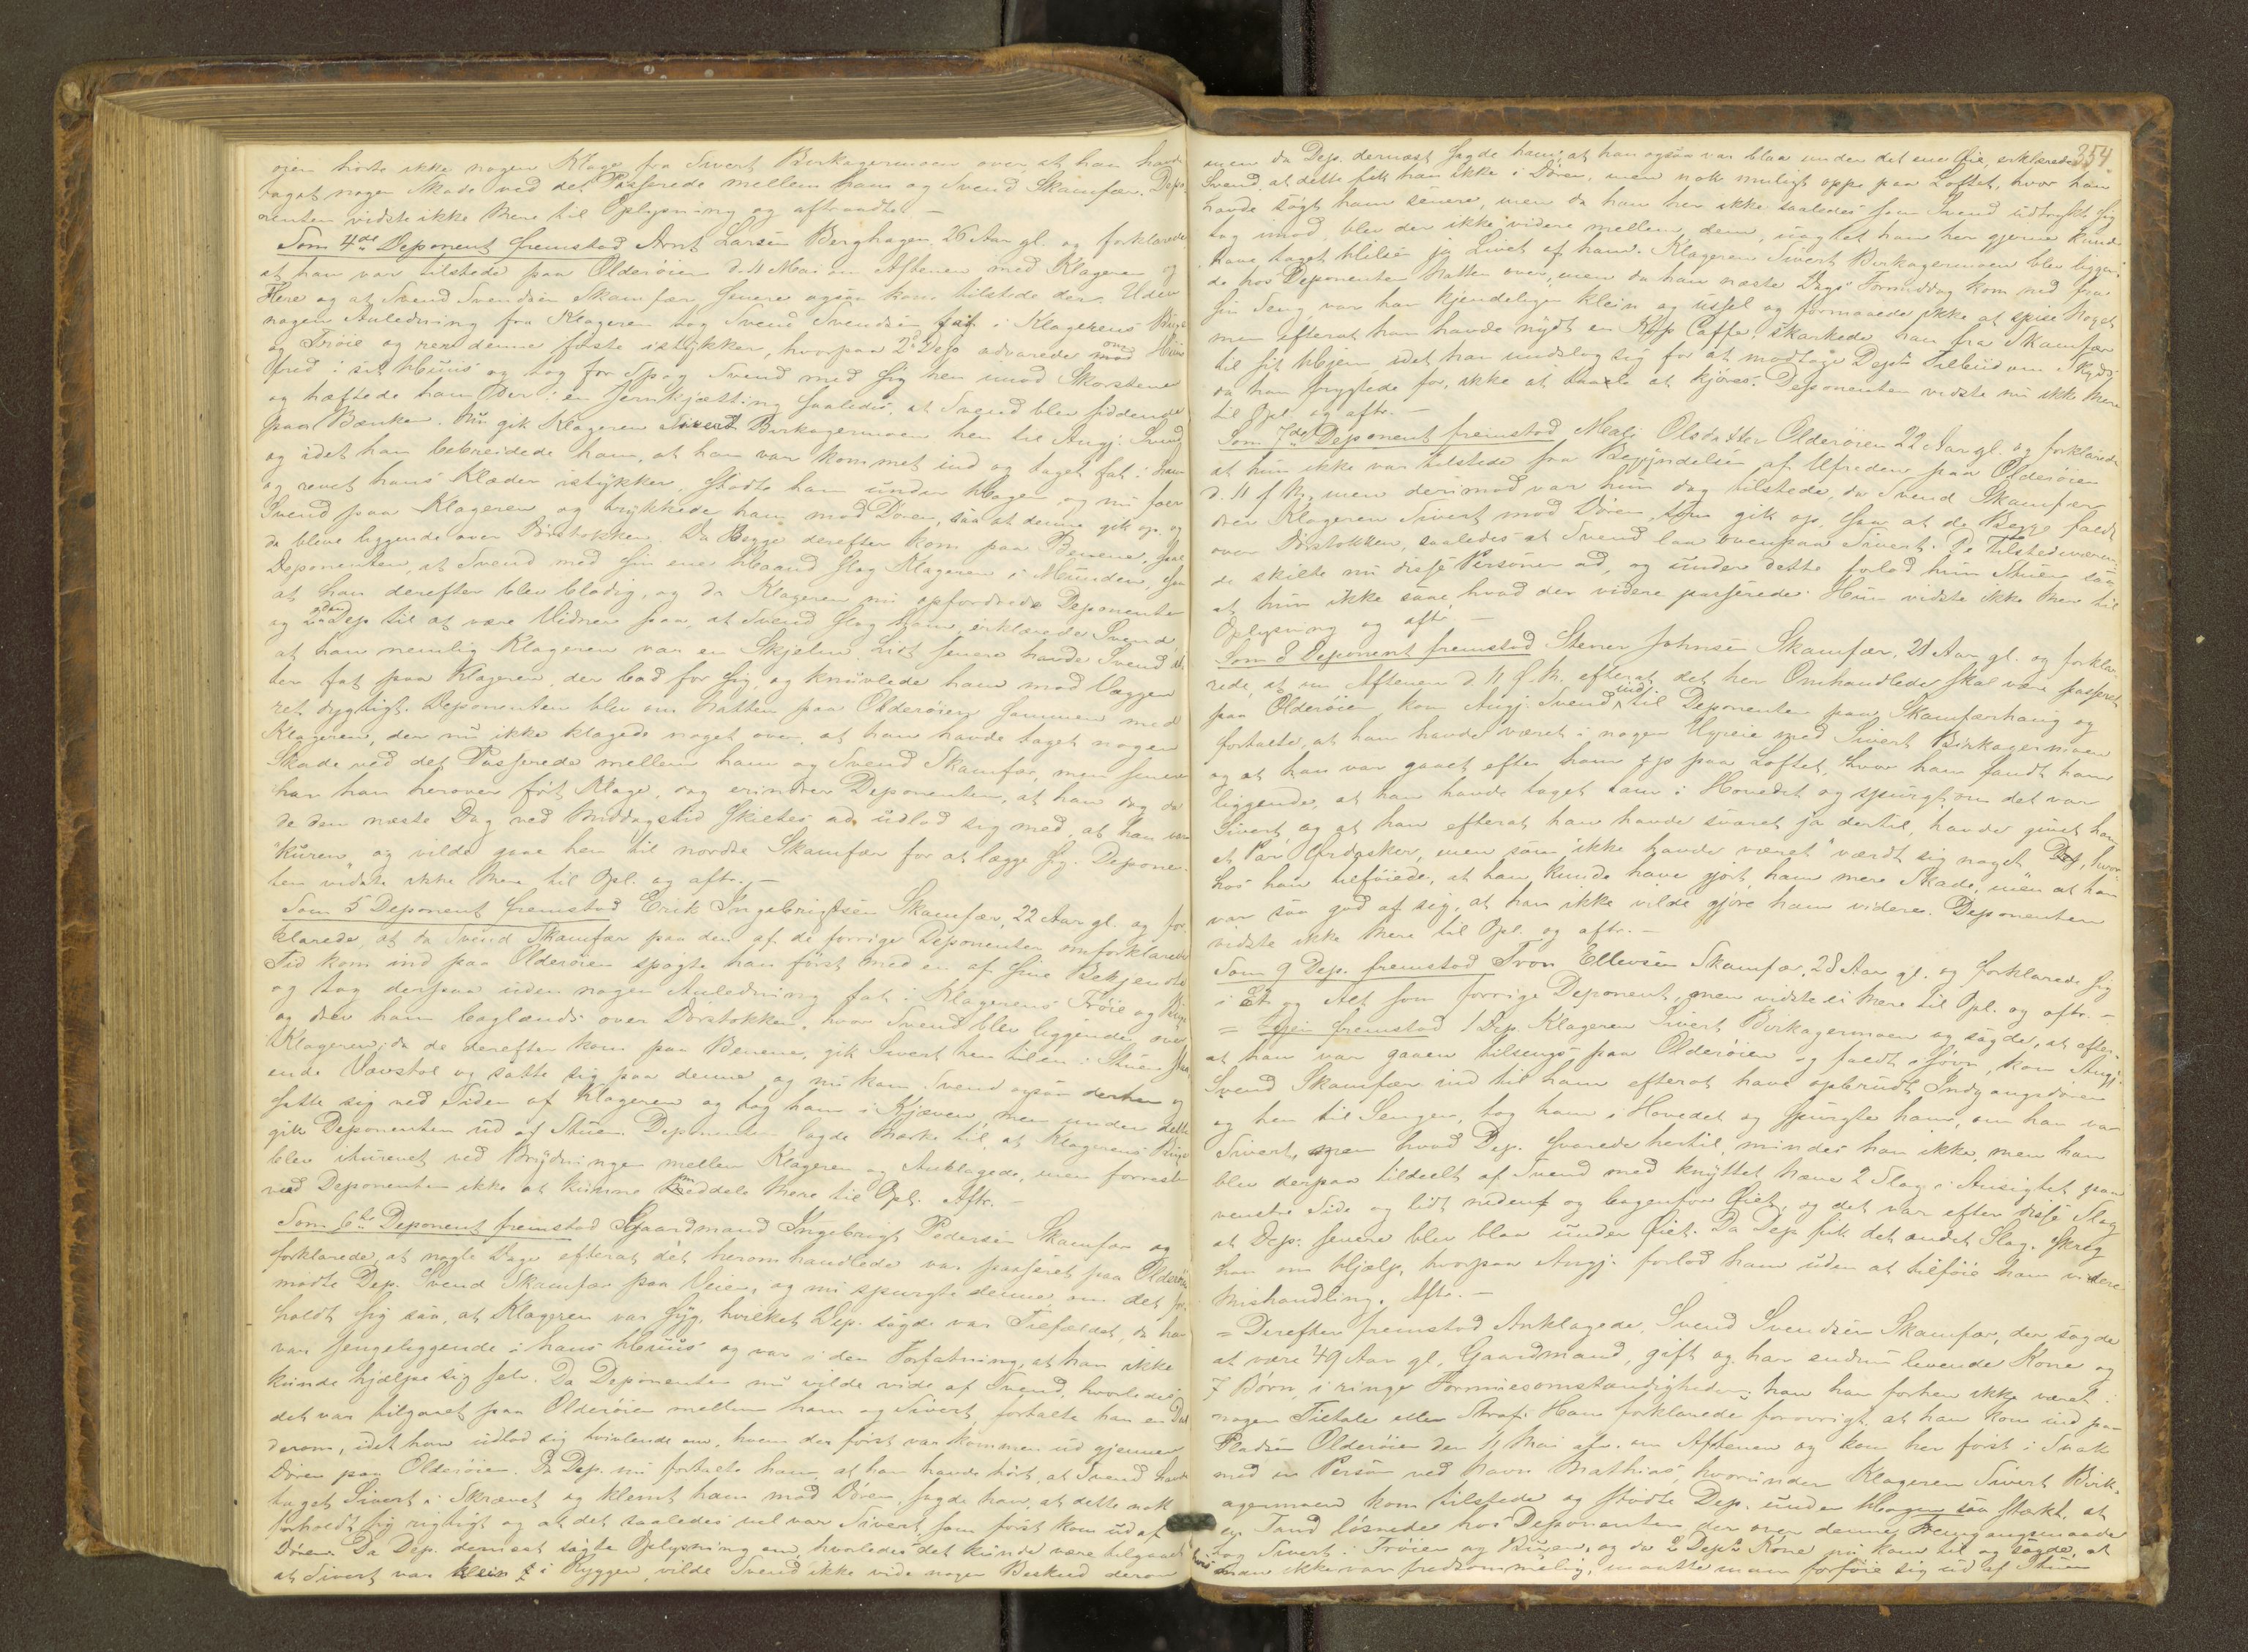 øien hørte ikke nogen Klage fra Sivert Birkagermoen over, at han havde
taget nogen Skade ved det Passerede mellem ham og Svend Skamfær. Depo-
nenten vidste ikke Mere til Oplysning og aftraadte. –
Som 4de Deponent fremstod Arnt Larsen Berghagen, 26 Aar gl. og forklarede
at han var tilstede paa Olderøien d. 11 Mai om Aftenen med Klageren og
Flere og at Svend Svendsen Skamfær senere ogsaa kom tilstede der. Uden
nogen Anledning fra Klageren tog Svend Svendsen fat i Klagerens Buxe
og Trøie og rev denne første istykker, hvorpaa 2d Dep. advarede om mod
Ufred i sit Huus og tog for Spøg Svend med sig hen imod Skorstenen
og hæftede ham der i en Jernkjætting saaledes, at Svend blev siddende
paa Bænken. Nu gik Klageren Sivert Birkagermoen hen til Angj. Svend
og idet han bebreidede ham, at han var kommet ind og taget fat i ham
og revet hans Klæder istykker, stødte ham under Hagen og nu foer
Svend paa Klageren og trykkede ham mod Døren, saa at denne gik op og
de bleve liggende over Dørstokken. Da Begge derefter kom paa Benene, saae
Deponenten, at Svend med sin ene Haand slog Klageren i Munden, saa
at han derefter blev blodig, og da Klageren nu opfordrede Deponenten
og 2den Dep. til at være Vidner paa, at Svend slog ham, erklærede Svend
at han nemlig Klageren var en Skjelm. Lidt senere havde Svend at-
ter fat paa Klageren, der bad for sig, og knuvlede ham mod Væggen
ret dygtigt. Deponenten blev om Natten paa Olderøien sammen med
Klageren, der nu ikke klagede noget over, at han havde taget nogen
Skade ved det Passerede mellem ham og Svend Skamfær, men senere
har han herover ført Klage, dog erindrer Deponenten, at han dog da
de den næste Dag ved Middagstid skiltes ad, udlod sig med, at han var
"kuren" og vilde gaae hen til nordre Skamfær for at lægge sig. Deponen-
ten vidste ikke Mere til Opl. og aftr. –
Som 5 Deponent fremstod Erik Ingebrigtsen Skamfær, 22 Aar gl. og for-
klarede, at da Svend Skamfær paa den af de forrige Deponenter omforklarede
Tid kom ind paa Olderøien spøgte han først med en af sine Bekjendte
og tog derpaa uden nogen Anledning fat i Klagerens Trøie og Buxe
og drev ham baglænds over Dørstokken, hvor Svend blev liggende over
Klageren; da de derefter kom paa Benene, gik Sivert hen til en i Stuen staa-
ende Vævstol og satte sig paa denne og nu kom Svend ogsaa derhen og
satte sig ved Siden af Klageren og tog ham i Kjæven, men under dette
gik Deponenten ud af Stuen. Deponenten lagde Mærke til, at Klagerens Buxe
blev iturevet ved Brydningen mellem Klageren og Anklagede, men forresten
ved Deponenten ikke at kunne meddele Mere til Opl. Aftr. –
Som 6te Deponent fremstod Gaardmand Ingebrigt Pedersen Skamfær og
forklarede, at nogle Dage efterat det herom handlede var passeret paa Olderøien
mødte Dep. Svend Skamfær paa Veien, og nu spurgte denne om det for-
holdt sig saa, at Klageren var syg, hvilket Dep. sagde var Tilfældet, da han
var sengeliggende i hans Huus og var i den Forfatning, at han ikke
kunde hjælpe sig selv. Da Deponenten nu vilde vide af Svend, hvorledes
det var tilgaaet paa Olderøien mellem ham og Sivert, fortalte han en Deel
derom, idet han udlod sig tvivlende om, hvem der først var kommen ud gjennem
Døren paa Olderøien. Da Dep. nu fortalte ham, at han havde hørt, at Svend havde
taget Sivert i Skrævet og klemt ham mod Døren, sagde han, at dette nok
forholdt sig rigtigt og at det saaledes vel var Sivert, som først kom ud af
Døren. Da Dep. dernæst søgte Oplysning om, hvorledes det kunde være tilgaaet
at Sivert var klein i Ryggen, vilde Svend ikke vide nogen Besked derom
354
men da Dep. dernæst sagde ham, at han ogsaa var blaa under det ene Øie, erklærede
Svend, at dette fik han ikke i Døren, men nok muligt oppe paa Loftet, hvor han
havde søgt ham senere, men da han her ikke saaledes som Svend udtrykte sig
tog imod, blev der ikke videre mellem dem, uagtet han her gjerne kunde
have taget Livet af ham. Klageren Sivert Birkagermoen blev liggen-
de hos Deponenten Natten over, men da han næste Dags Formiddag kom ned fra
sin Seng, var han kjendeligen klein og ussel og formaaede ikke at spise Noget
men efterat han havde nydt en Kop Caffe, skarkede han fra Skamfær
til sit Hjem, idet han undslog sig for at modtage Dep.s Tilbud om Kyds
da han frygtede for, ikke at taale at kjøres. Deponenten vidste nu ikke Mere
til Opl. og aftr. –
Som 7de Deponent fremstod Mali Olsdatter Olderøien 22 Aar gl. og forklarede
at hun ikke var tilstede fra Begyndelsen af Ufreden paa Olderøien
d. 11 f. M. men derimod var hun dog tilstede, da Svend Skamfær
drev Klageren Sivert mod Døren, som gik op, saa at de Begge faldt
over Dørstokken, saaledes at Svend laa ovenpaa Sivert. De Tilstedeværen-
de skilte nu disse Personer ad, og under dette forlod hun Stuen saa
at hun ikke saae, hvad der videre passerede. Hun vidste ikke Mere til
Oplysning og aftr. –
Som 8 Deponent fremstod Stener Johnsen Skamfær, 21 Aar gl. og forkla-
rede, at om Aftenen d. 11 f. M. efterat det her Omhandlede skal være passeret
paa Olderøien, kom Angj. Svend ind til Deponenten paa Skamfærhaug og
fortalte, at han havde været i nogen Ugreie med Sivert Birkagermoen
og at han var gaaet efter ham op paa Loftet, hvor han fandt ham
liggende, at han havde taget ham i Hovedet og spurgt, om det var
Sivert, og at han efterat han havde svaret ja dertil, havde givet ham
et Par Ørdasker, men som ikke havde været "værdt sig noget", hvor-
hos han tilføiede, at han kunde have gjort ham mere Skade, men at han
var saa god af sig, at han ikke vilde gjøre ham videre. Deponenten
vidste ikke Mere til Opl. og aftr. –
Som 9 Dep. fremstod Tron Ellevsen Skamfær, 28 Aar gl. og forklarede sig
i Et og Alt som forrige Deponent, men vidste ei Mere til Opl. og aftr. –
= Igjen fremstod 1 Dep. Klageren Sivert Birkagermoen og sagde, at efter-
at han var gaaen tilsengs paa Olderøien og faldt i Søvn, kom Angj.
Svend Skamfær ind til ham efterat have opbrudt Indgangsdøren
og hen til Sengen, tog ham i Hovedet og spurgte ham, om han var
Sivert, men hvad Dep. svarede hertil, mindes han ikke, men han
blev derpaa tildeelt af Svend med knyttet Næve 2 Slag i Ansigtet paa
venstre Side og lidt nedenf. og bagenfor Øiet, og det var efter disse Slag
at Dep. senere blev blaa under Øiet. Da Dep. fik det andet Slag, skreg
han om Hjælp, hvorpaa Angj. forlod ham uden at tilføie ham videre
Mishandling. Aftr. –
= Derefter fremstod Anklagede, Svend Svendsen Skamfær, der sagde
at være 49 Aar gl., Gaardmand, gift og har endnu levende Kone og
7 Børn, i ringe Formuesomstændigheder; han har forhen ikke været i
nogen Tiltale eller Straf. Han forklarede forøvrigt, at han kom ind paa
Pladsen Olderøien den 11 Mai afv. om Aftenen og kom her først i Snak
med en Person ved Navn Mathias, hvorunder Klageren Sivert Birk-
agermoen kom tilstede og stødte Dep. under Hagen saa stærkt, at
en Tand løsnede hos Deponenten der over denne Fremgangsmaade
tog Sivert i Trøien og Buxen, og da 2 Dep.s Kone nu kom til og sagde, at
hvis man ikke var fredsommelig, maatte man forføie sig ud af Stuen